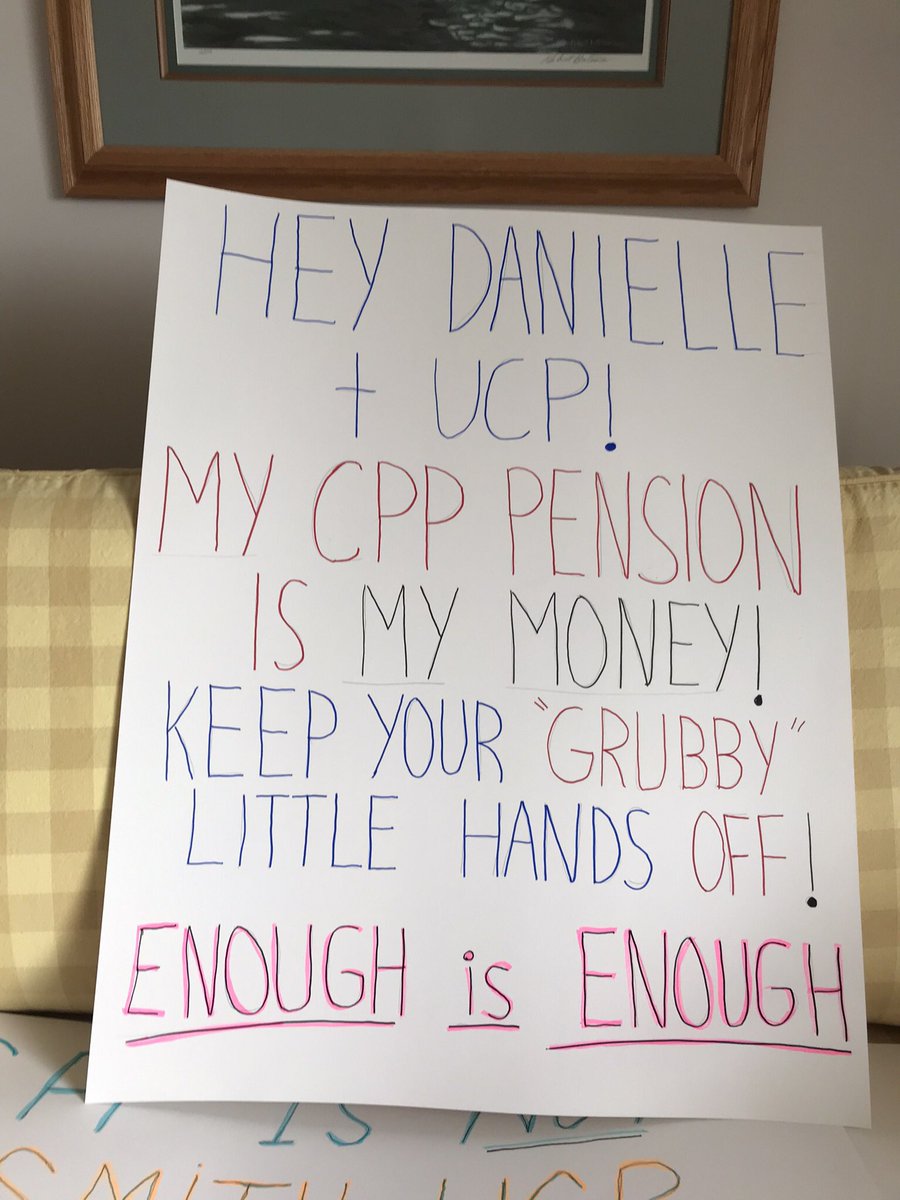 HEY DANIELLE
+ UCP!
MY CPP PENSION
IS MY MONEY!
KEEP YOUR "GRUBBY"
LITTLE HANDS OFF!
ENOUGH is ENOUGH
IS NOT
SMITH UCP